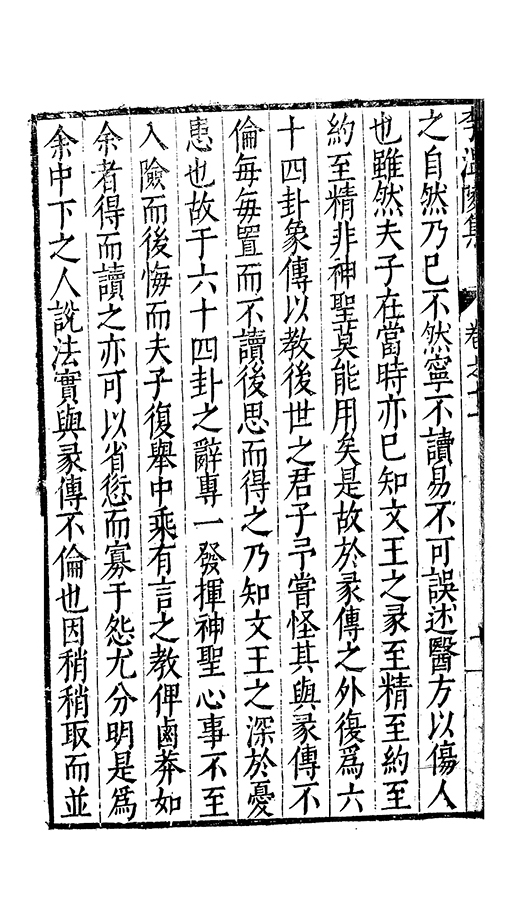 李溫陵集 卷之十一 十
之自然乃已不然寧不讀易不可誤述醫方以傷人
也雖然夫子在當時亦已知文王之彖至精至約至
約至精非神聖莫能用矣是故於彖傳之外復爲六
十四卦象傳以教後世之君子予嘗怪其與彖傳不
倫每每置而不讀後思而得之乃知文王之深於憂
患也故于六十四卦之辭專一發揮神聖心事不至
入險而後悔而夫子復舉中乘有言之教俾鹵莽如
余者得而讀之亦可以省愆而寡于怨尤分明是爲
余中下之人說法實與彖傳不倫也因稍稍取而並